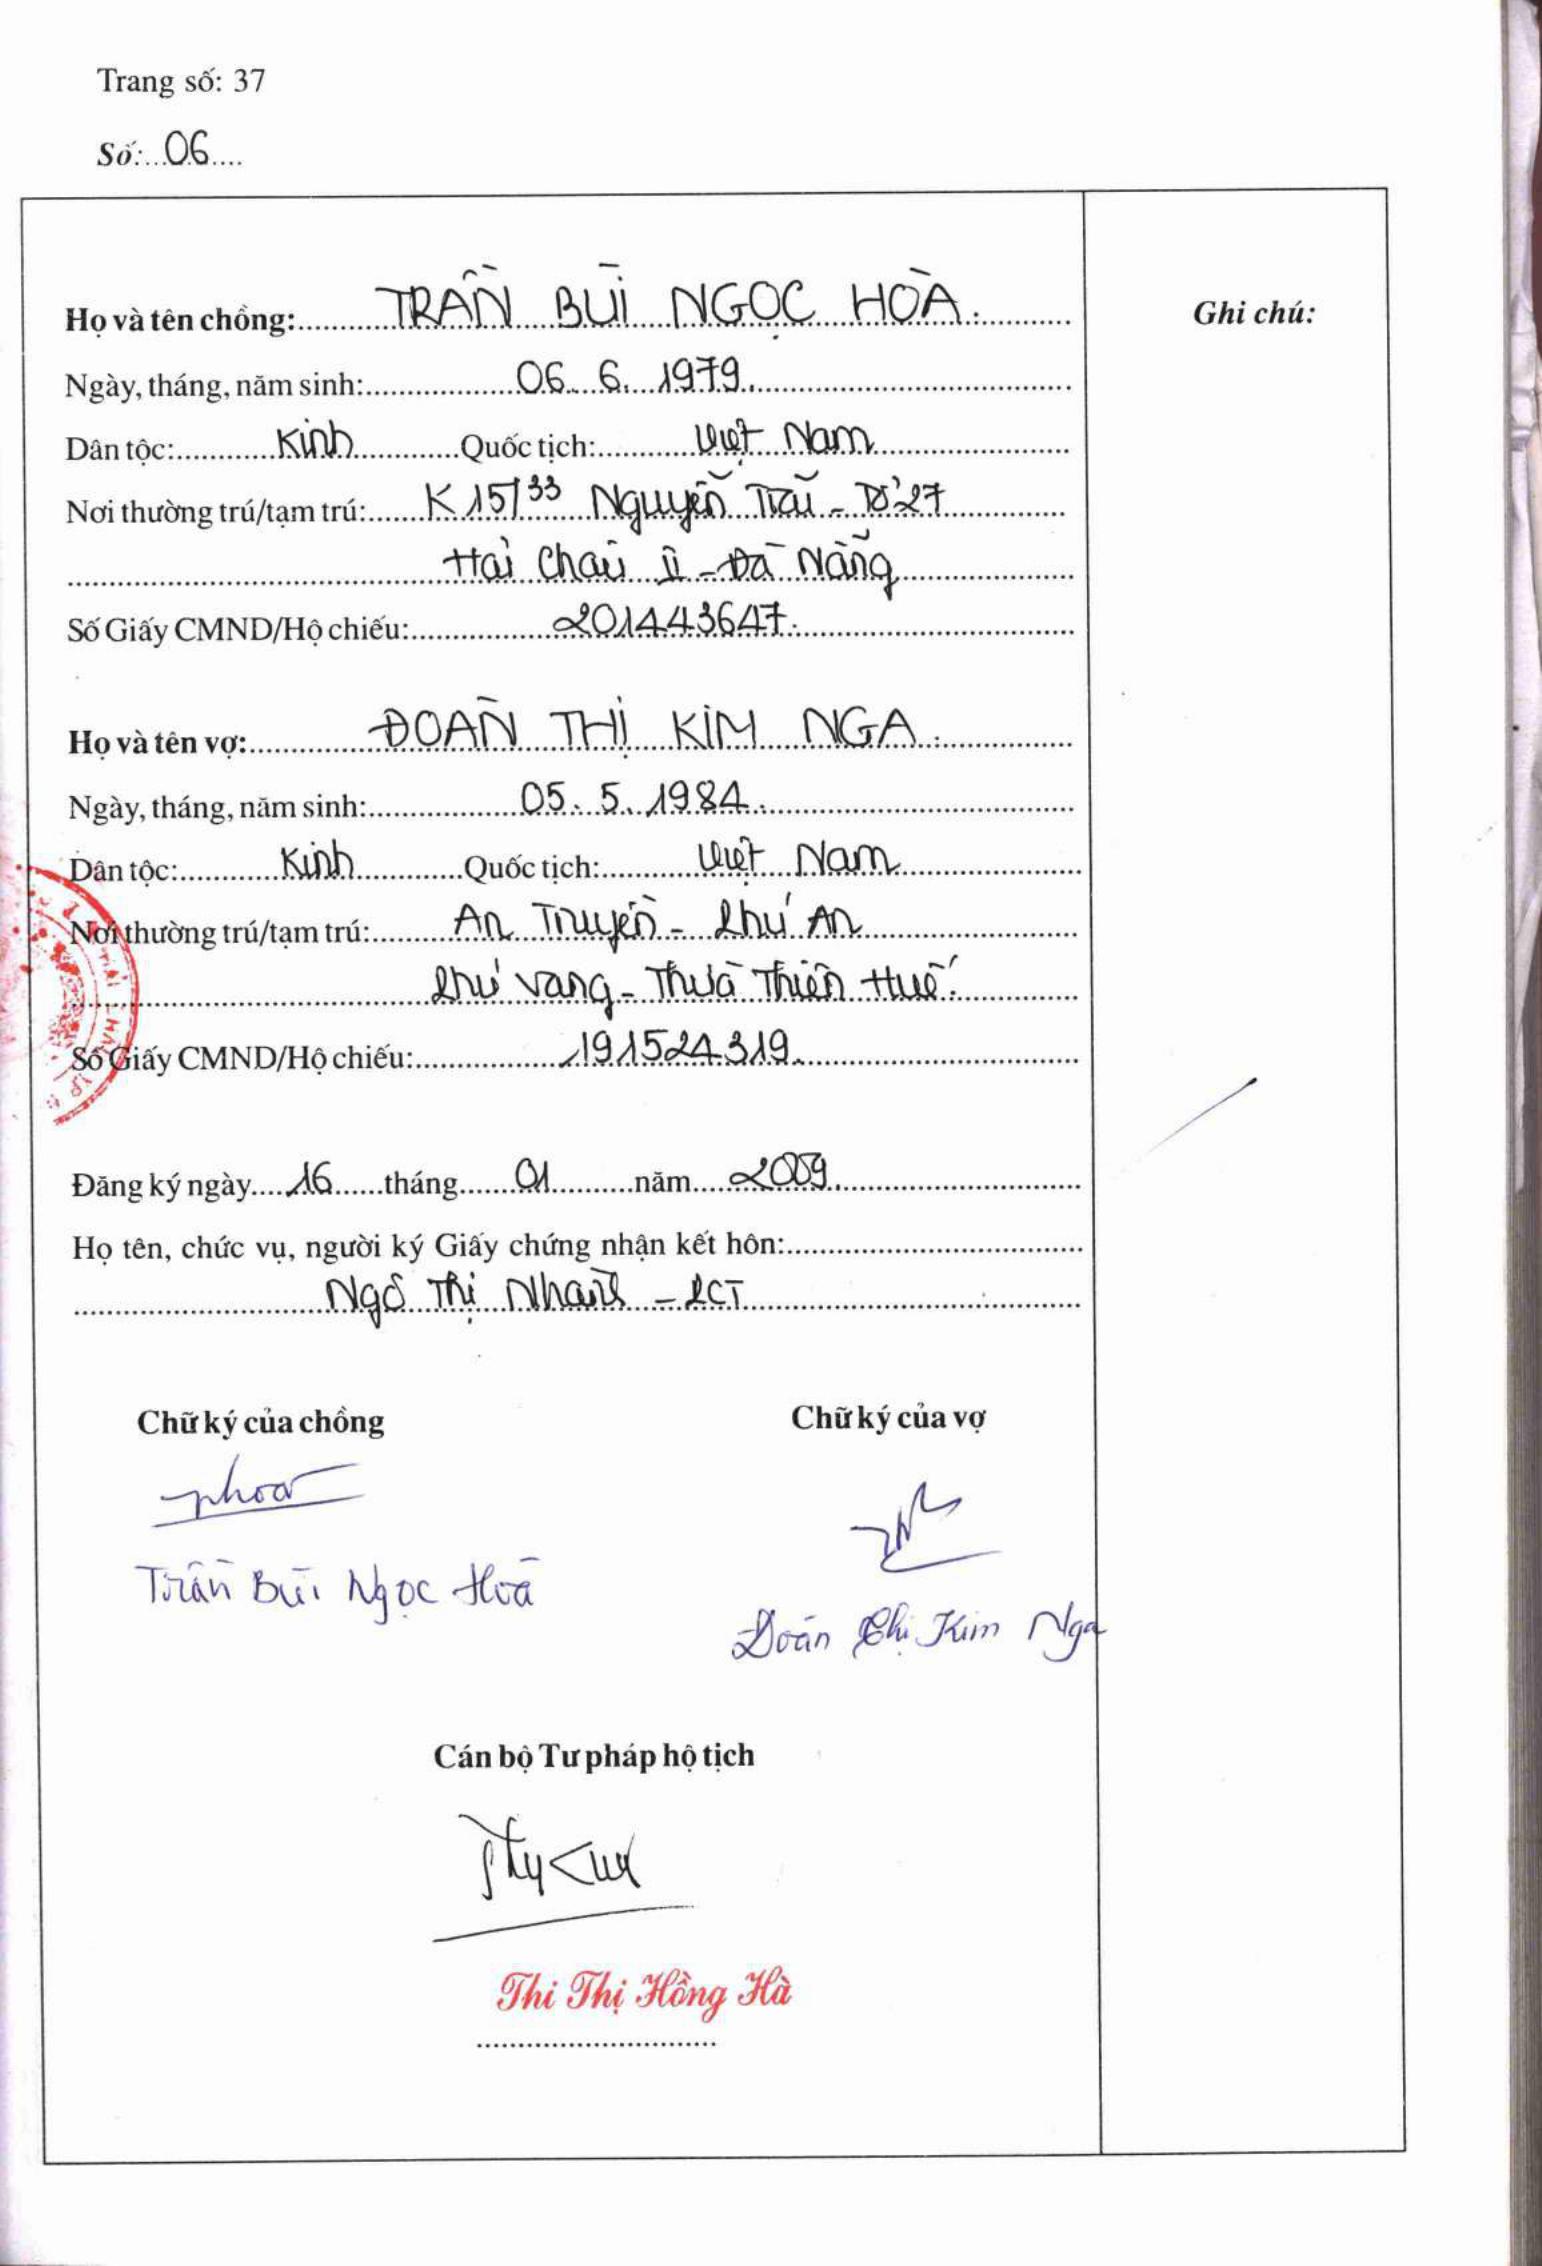 Trang số: 37
Số: 06
Họ và tên chồng: TRẦN BÙI NGỌC HÒA.
Ghi chú:
Ngày, tháng, năm sinh: 06. 6. 1979.
Dân tộc: Kinh Quốc tịch: Việt Nam
Nơi thường trú/tạm trú: K15/33 Nguyễn Trãi - Tổ 27
Hải Châu II - Đà Nẵng
Số Giấy CMND/Hộ chiếu: 201443647.
Họ và tên vợ: ĐOÀN THỊ KIM NGA.
Ngày, tháng, năm sinh: 05. 5. 1984.
Dân tộc: Kinh Quốc tịch: Việt Nam
Nơi thường trú/tạm trú: An Truyền - Phú An
Phú Vang - Thừa Thiên Huế.
Số Giấy CMND/Hộ chiếu: 191524319.
Đăng ký ngày 16 tháng 01 năm 2009
Họ tên, chức vụ, người ký Giấy chứng nhận kết hôn:
Ngô Thị - PCT
Chữ ký của chồng Chữ ký của vợ
Trần Bùi Ngọc Hoà
Đoàn Thị Kim Nga
Cán bộ Tư pháp hộ tịch
Thi Thị Hồng Hà